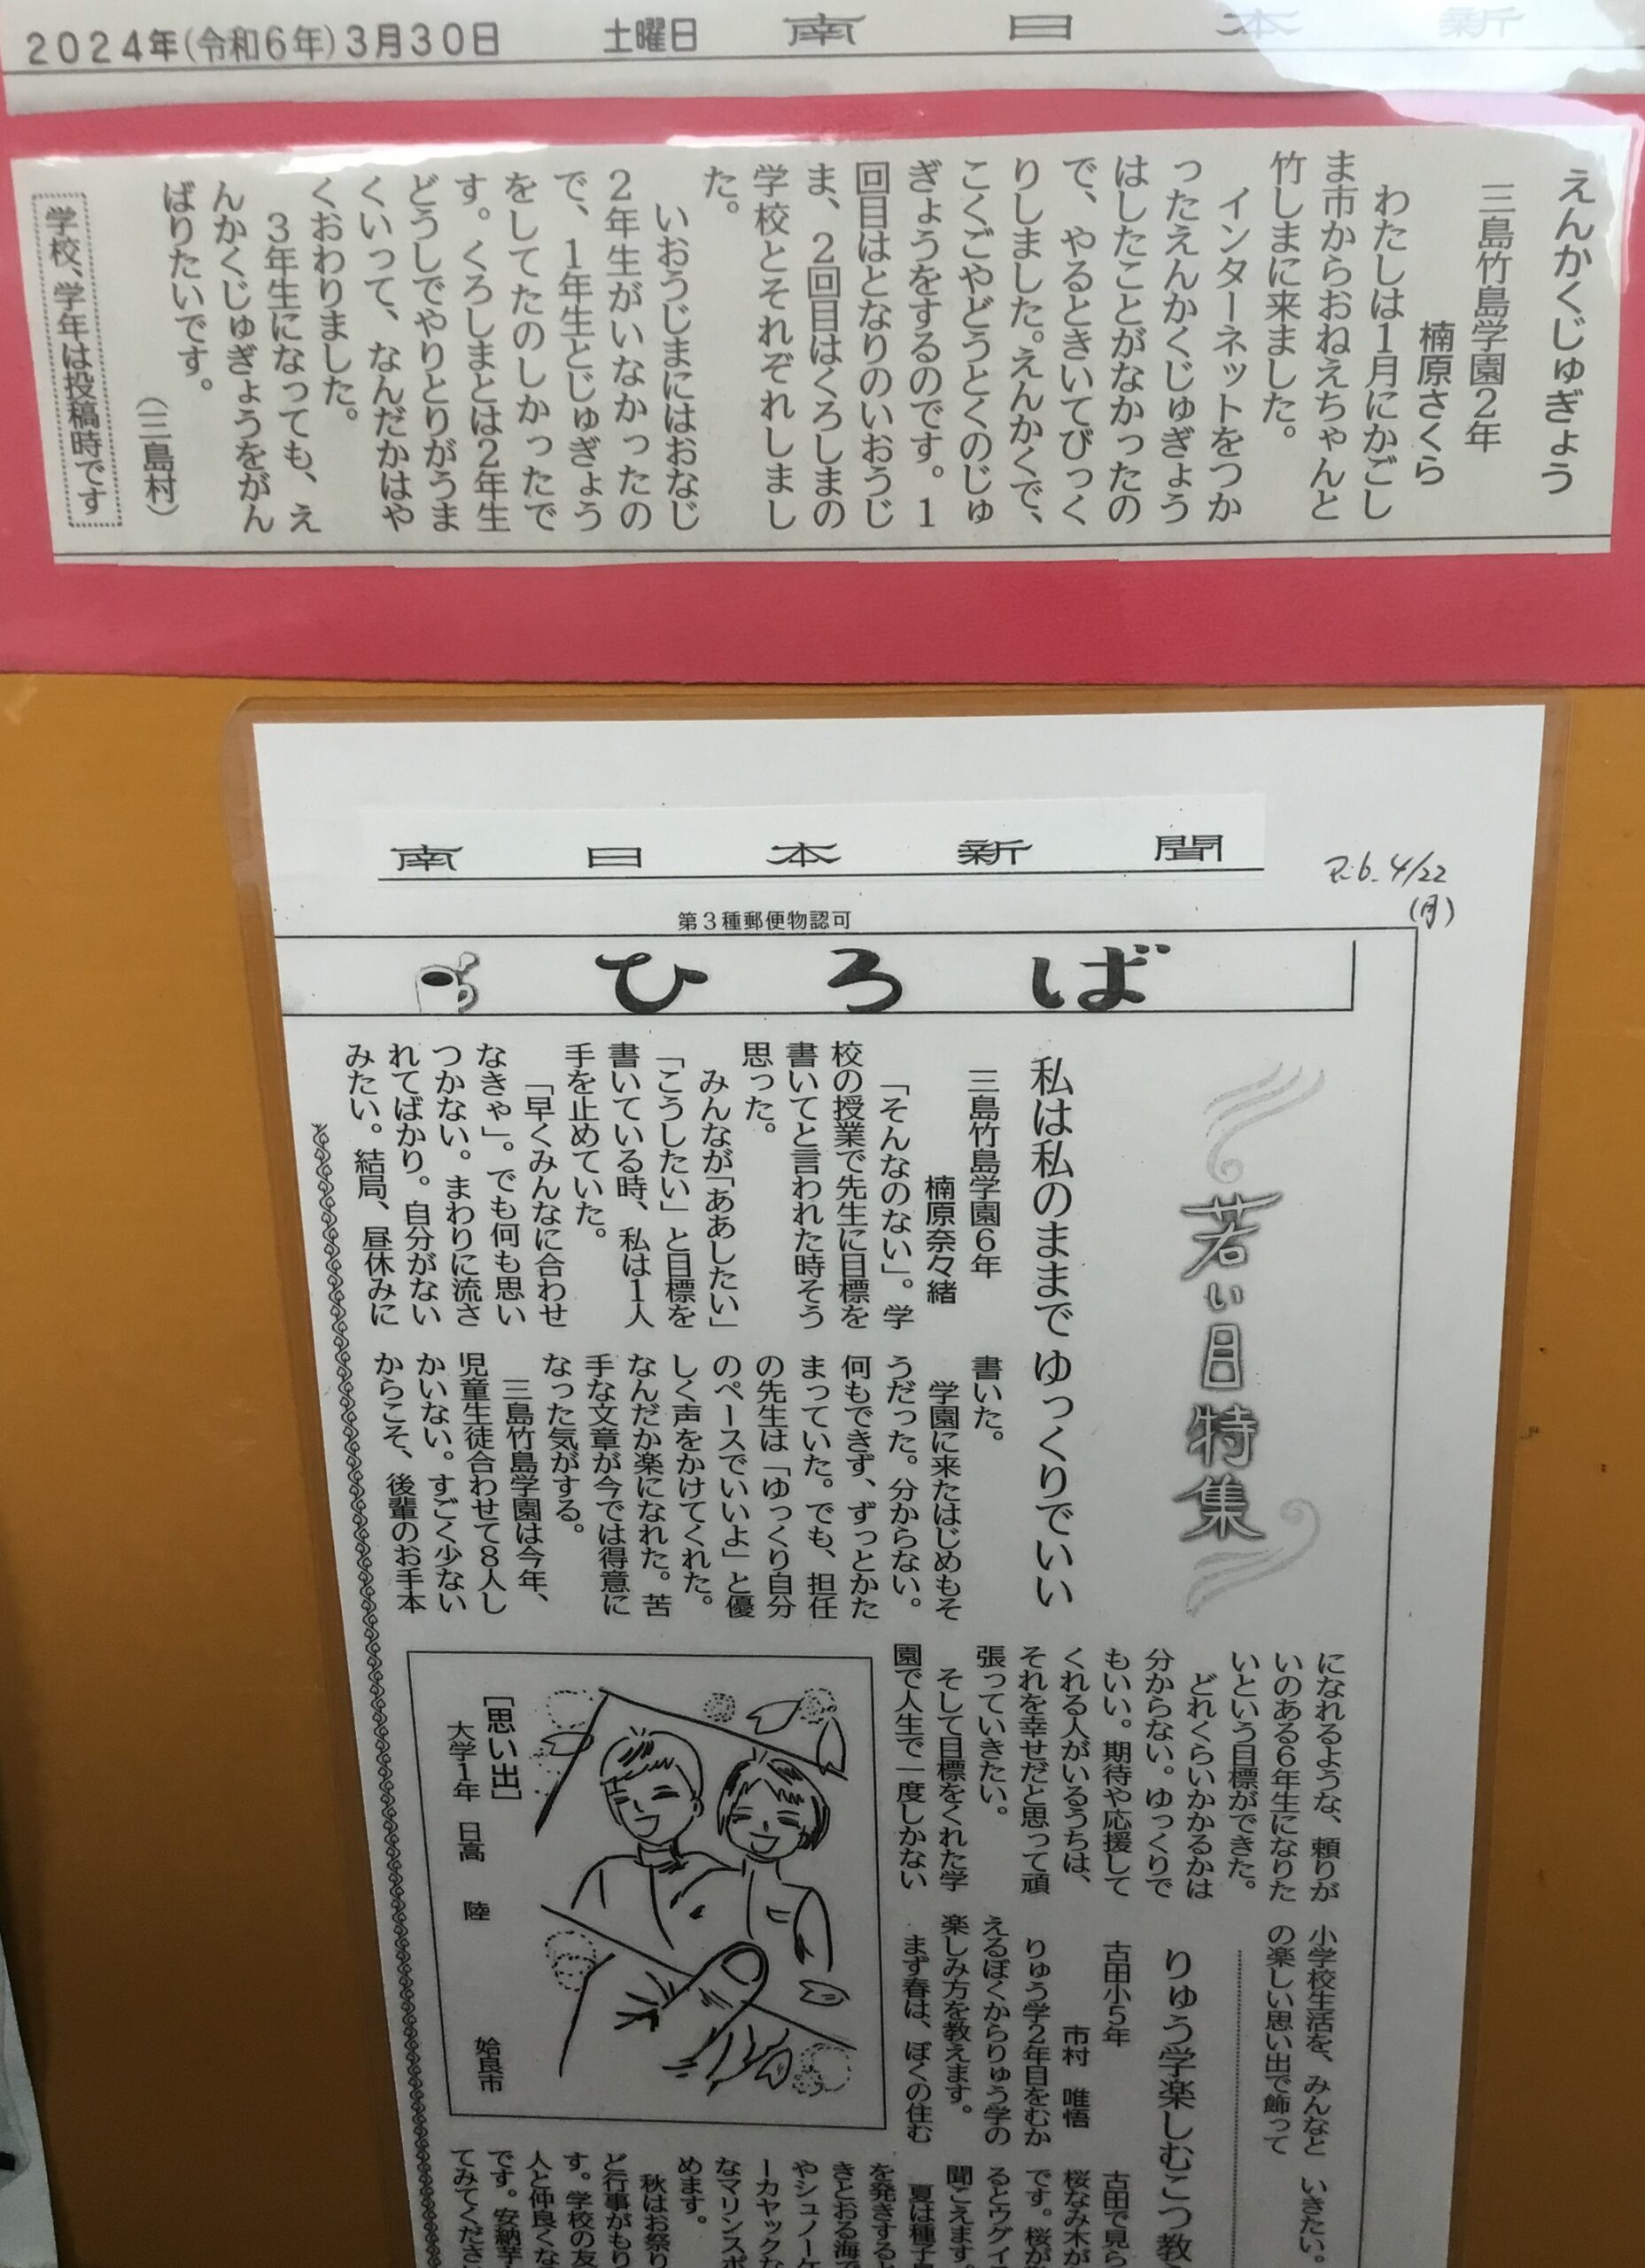 2024年(令和6年)3月30日　土曜日　南日本新
えんかくじゅぎょう
三島竹島学園2年
楠原さくら
わたしは1月にかごし
ま市からおねえちゃんと
竹しまに来ました。
インターネットをつか
ったえんかくじゅぎょう
はしたことがなかったの
で、やるときいてびっく
りしました。えんかくで、
こくごやどうとくのじゅ
ぎょうをするのです。1
回目はとなりのいおうじ
ま、2回目はくろしまの
学校とそれぞれしまし
た。
いおうじまにはおなじ
2年生がいなかったの
で、1年生とじゅぎょう
をしてたのしかったで
す。くろしまとは2年生
どうしでやりとりがうま
くいって、なんだかはや
くおわりました。
3年生になっても、え
んかくじゅぎょうをがん
ばりたいです。
(三島村)
学校、学年は投稿時です
南日本新聞
R.6.4/22
(月)
第3種郵便物認可
ひろば
若い目特集
私は私のままで ゆっくりでいい
三島竹島学園6年
楠原奈々緒
「そんなのない」。学
校の授業で先生に目標を
書いてと言われた時そう
思った。
みんなが「ああしたい」
「こうしたい」と目標を
書いている時、私は1人
手を止めていた。
「早くみんなに合わせ
なきゃ」。でも何も思い
つかない。まわりに流さ
れてばかり。自分がない
みたい。結局、昼休みに
書いた。
学園に来たはじめもそ
うだった。分からない。
何もできず、ずっとかた
まっていた。でも、担任
の先生は「ゆっくり自分
のペースでいいよ」と優
しく声をかけてくれた。
なんだか楽になれた。苦
手な文章が今では得意に
なった気がする。
三島竹島学園は今年、
児童生徒合わせて8人し
かいない。すごく少ない
からこそ、後輩のお手本
になれるような、頼りが
いのある6年生になりた
いという目標ができた。
どれくらいかかるかは
分からない。ゆっくりで
もいい。期待や応援して
くれる人がいるうちは、
それを幸せだと思って頑
張っていきたい。
そして目標をくれた学
園で人生で一度しかない
小学校生活を、みんなと
の楽しい思い出で飾って
いきたい。
[思い出]
大学1年　日高　陸
姶良市
りゅう学楽しむこつ教
古田小5年
市村　唯悟
りゅう学2年目をむか
えるぼくからりゅう学の
楽しみ方を教えます。
まず春は、ぼくの住む
古田で見ら
桜なみ木が
です。桜が
るとウグイ
聞こえます。
夏は種子島
を発きすると
きとおる海で
やシュノーケ
ーカヤックな
なマリンスポ
めます。
秋はお祭り
ど行事がもり
す。学校の友
人と仲良くな
です。安納芋
てみてくださ